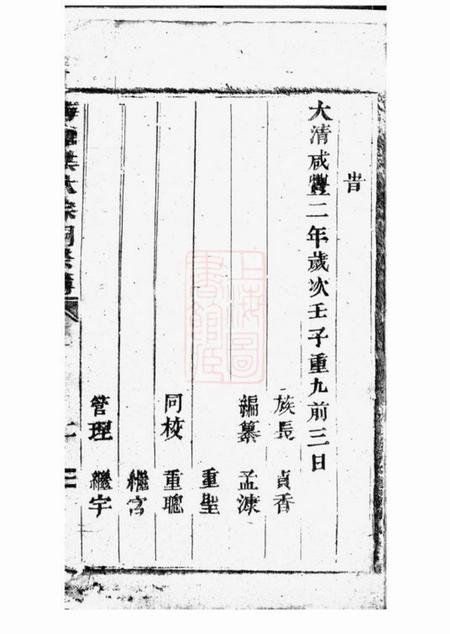 旹
大清咸豐二年歲次壬子重九前三日
族長 貞香
編纂 孟涑
重聖
同校 重聰
繼宮
管理 繼宇
上海圖書館藏